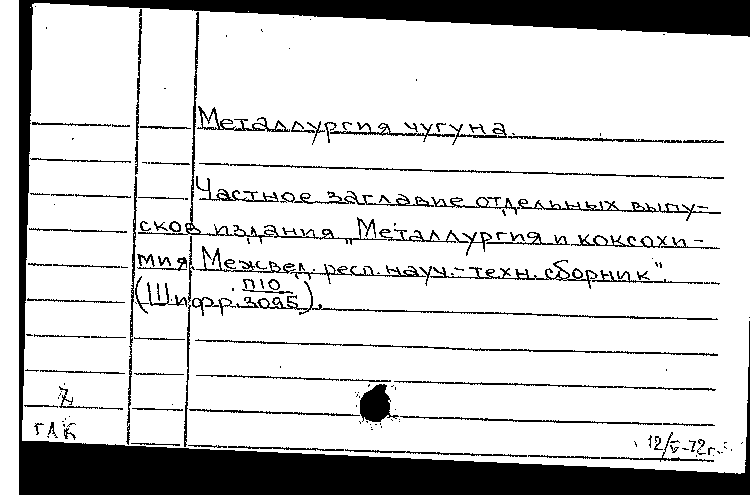 Металлургия чугуна.
Частное заглавие отдельных выпу-
сков издания „Металлургия и коксохи-
мия. Межвед. респ. науч.-техн. сборник".
(Шифр. П10
3095).
ГАК
12/V-72г.